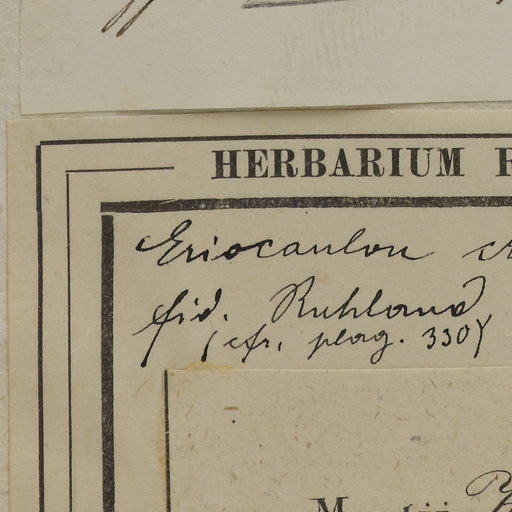 HERBARIUM
Eriocaulon
fid. Ruhland
(cfr. plag. 330)